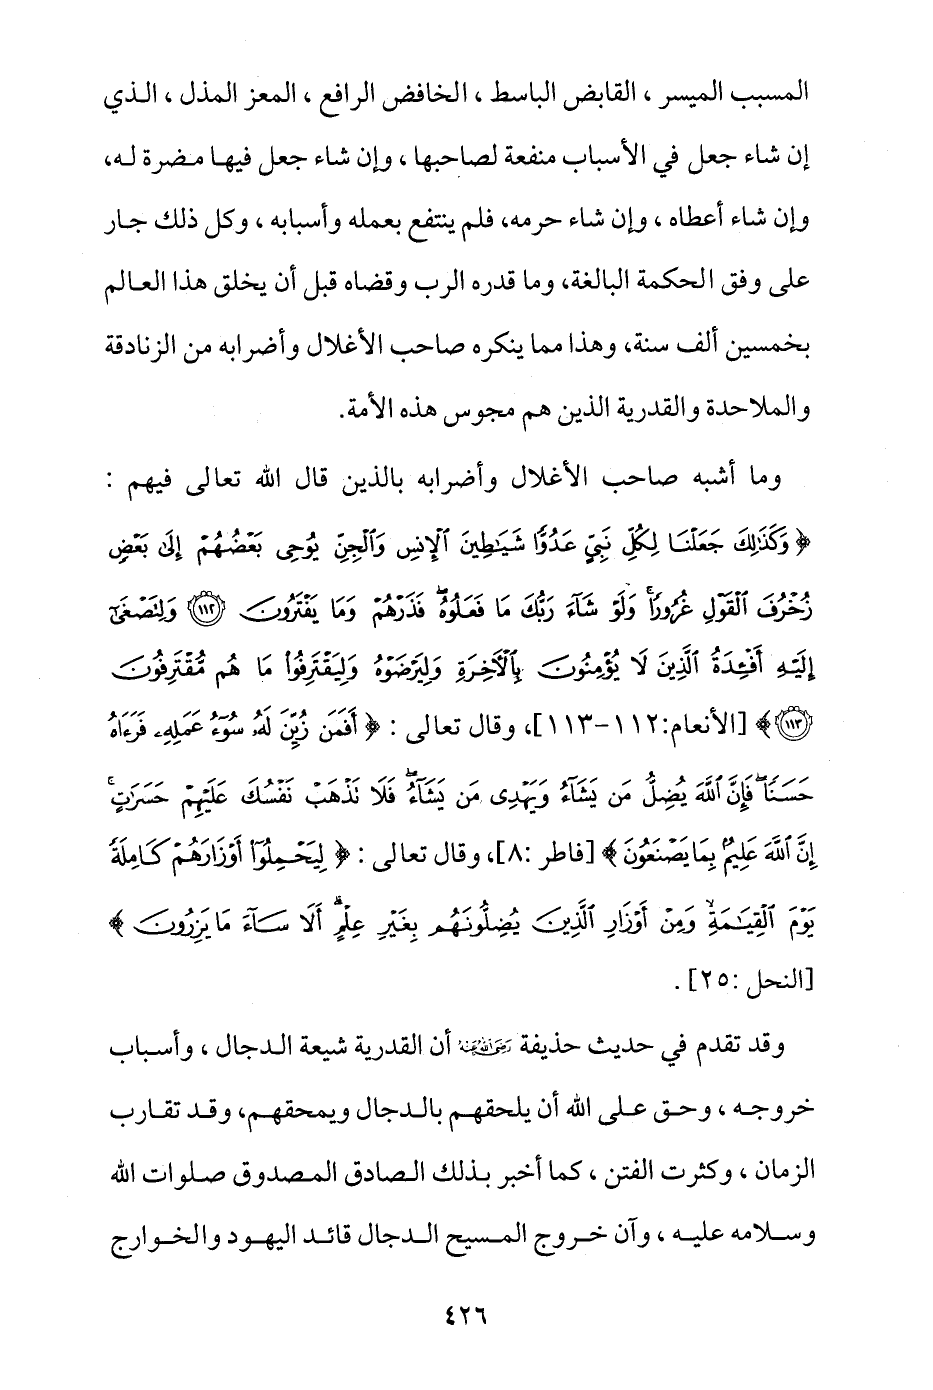 المسبب الميسر ، القابض الباسط ، الخافض الرافع ، المعز المذل ، الذي
إن شاء جعل في الأسباب منفعة لصاحبها ، وإن شاء جعل فيها مضرة له،
وإن شاء أعطاه ، وإن شاء حرمه، فلم ينتفع بعمله وأسبابه ، وكل ذلك جار
على وفق الحكمة البالغة، وما قدره الرب وقضاه قبل أن يخلق هذا العالم
بخمسين ألف سنة، وهذا مما ينكره صاحب الأغلال وأضرابه من الزنادقة
والملاحدة والقدرية الذين هم مجوس هذه الأمة.
وما أشبه صاحب الأغلال وأضرابه بالذين قال الله تعالى فيهم :
﴿ وَكَذَٰلِكَ جَعَلْنَا لِكُلِّ نَبِيٍّ عَدُوًّا شَيَٰطِينَ ٱلْإِنسِ وَٱلْجِنِّ يُوحِى بَعْضُهُمْ إِلَىٰ بَعْضٍ
زُخْرُفَ ٱلْقَوْلِ غُرُورًا ۚ وَلَوْ شَآءَ رَبُّكَ مَا فَعَلُوهُ ۖ فَذَرْهُمْ وَمَا يَفْتَرُونَ ﴿١١٢﴾ وَلِتَصْغَىٰٓ
إِلَيْهِ أَفْـِٔدَةُ ٱلَّذِينَ لَا يُؤْمِنُونَ بِٱلْأَخِرَةِ وَلِيَرْضَوْهُ وَلِيَقْتَرِفُوا۟ مَا هُم مُّقْتَرِفُونَ
﴿١١٣﴾ ﴾ [الأنعام:١١٢-١١٣]، وقال تعالى : ﴿ أَفَمَن زُيِّنَ لَهُۥ سُوٓءُ عَمَلِهِۦ فَرَءَاهُ
حَسَنًا ۖ فَإِنَّ ٱللَّهَ يُضِلُّ مَن يَشَآءُ وَيَهْدِى مَن يَشَآءُ ۖ فَلَا تَذْهَبْ نَفْسُكَ عَلَيْهِمْ حَسَرَٰتٍ ۚ
إِنَّ ٱللَّهَ عَلِيمٌۢ بِمَا يَصْنَعُونَ ﴾ [فاطر :٨]، وقال تعالى : ﴿ لِيَحْمِلُوٓا۟ أَوْزَارَهُمْ كَامِلَةً
يَوْمَ ٱلْقِيَٰمَةِ ۙ وَمِنْ أَوْزَارِ ٱلَّذِينَ يُضِلُّونَهُم بِغَيْرِ عِلْمٍ ۗ أَلَا سَآءَ مَا يَزِرُونَ ﴾
[النحل :٢٥] .
وقد تقدم في حديث حذيفة رضي الله عنه أن القدرية شيعة الدجال ، وأسباب
خروجه ، وحق على الله أن يلحقهم بالدجال ويمحقهم، وقد تقارب
الزمان ، وكثرت الفتن ، كما أخبر بذلك الصادق المصدوق صلوات الله
وسلامه عليه ، وآن خروج المسيح الدجال قائد اليهود والخوارج
٤٢٦